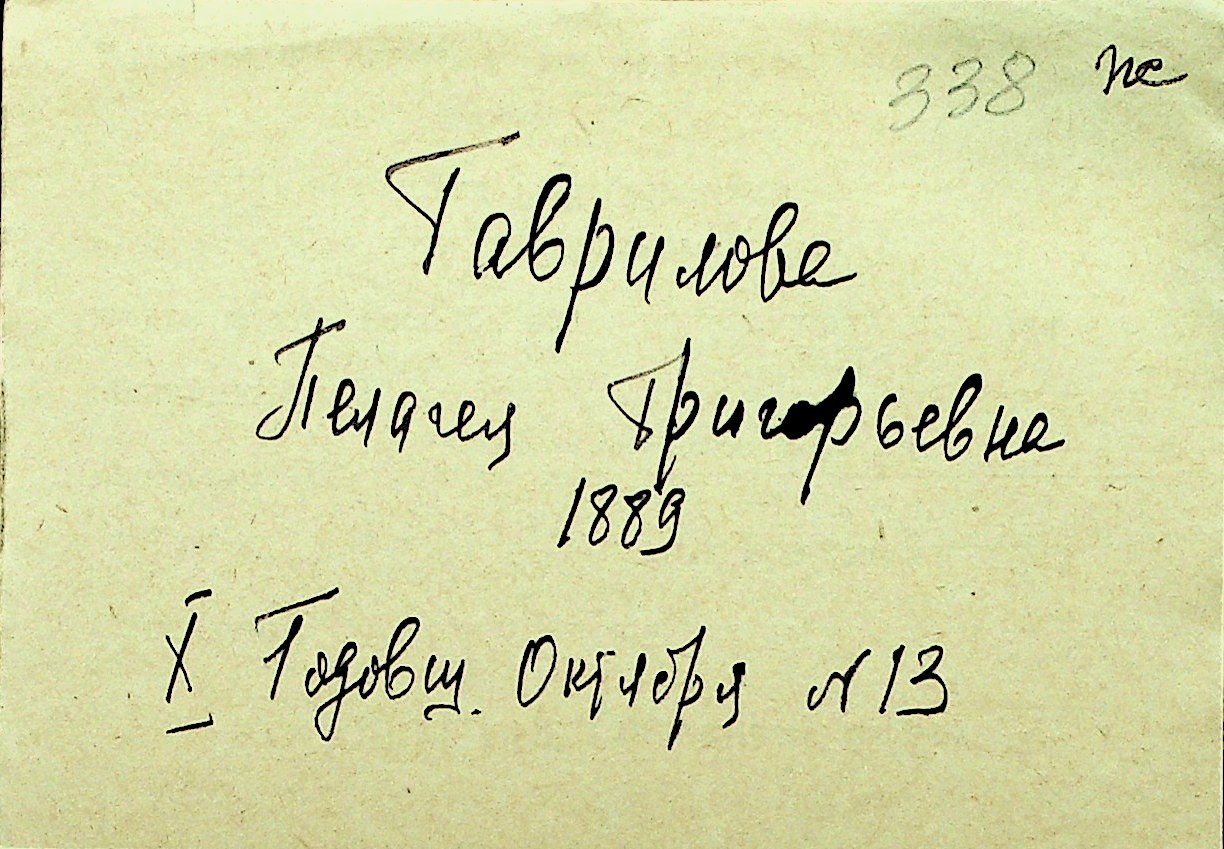 338 пс
Гаврилова
Пелагея Григорьевна
1889
X Годовщ. Октября N 13